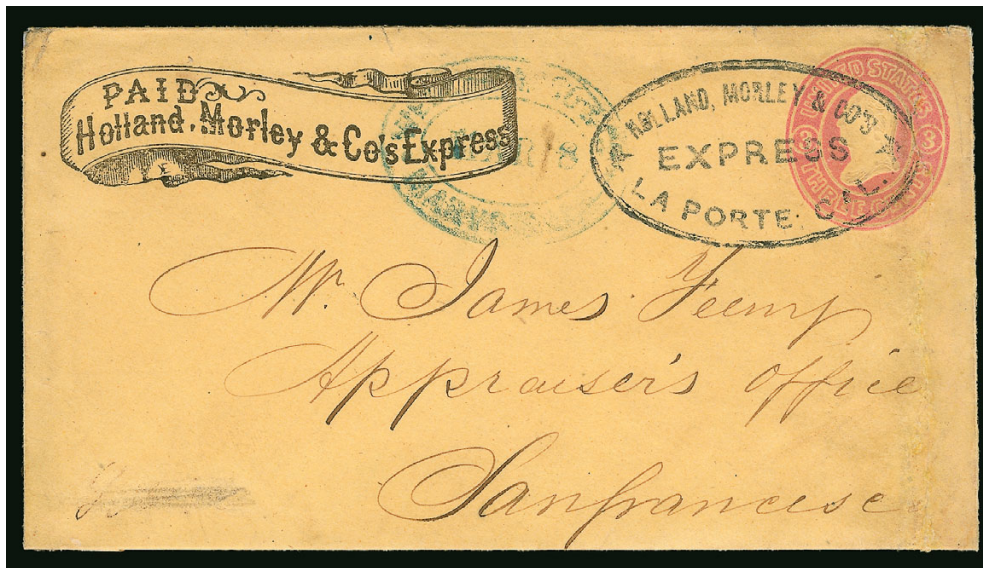 PAID
Holland, Morley & Co's Express
HOLLAND, MORLEY & CO'S
EXPRESS
LA PORTE. CAL.
UNITED STATES
3 3
THREE CENTS
MAR 8
Mr. James
Appraiser's office
Sanfrancisc